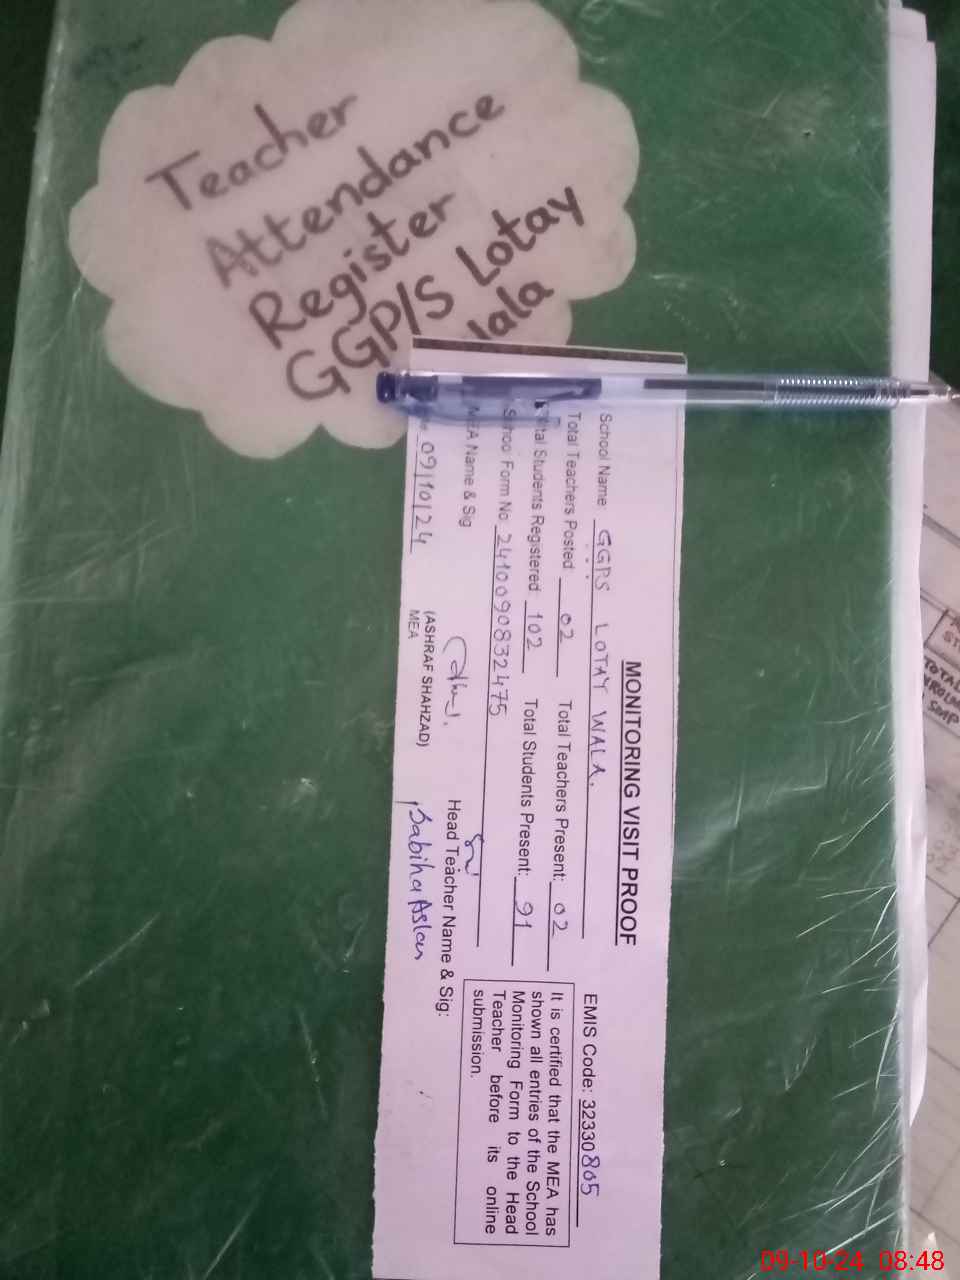 Teacher
Attendance
Register
GGP/S Lotay
MONITORING VISIT PROOF
School Name: GGPS LOTAY WALA.
EMIS Code: 32330805
Total Teachers Posted: 02 Total Teachers Present: 02
Students Registered: 102 Total Students Present: 91
School Form No: 2410090832475
MEA Name & Sig
Head Teacher Name & Sig:
09/10/24
(ASHRAF SHAHZAD)
MEA
Sabiha Aslam
It is certified that the MEA has
shown all entries of the School
Monitoring Form to the Head
Teacher before its online
submission.
TOTAL
09-10-24 08:48